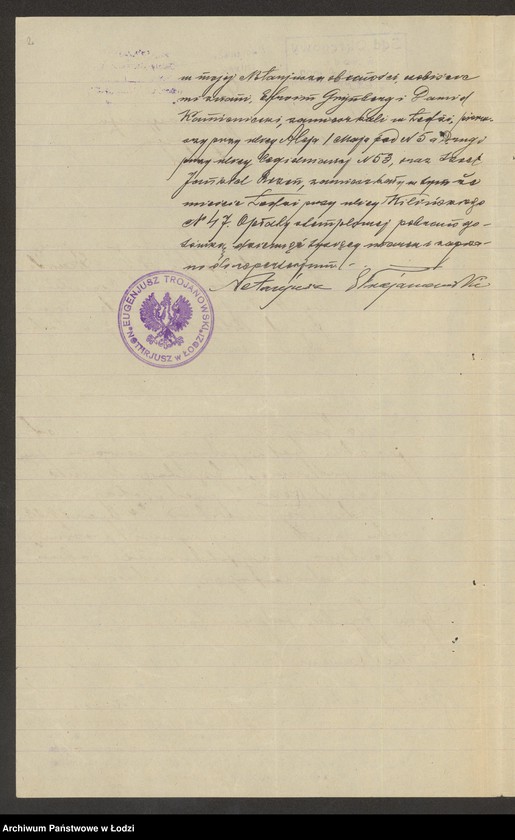 w mojej Notarjusza obecności osobiście
mi znani, Efroim Grynberg i Dawid
Kamieniecki, zamieszkali w Łodzi, pierw-
szy przy ulicy Aleja 1 Maja pod N 5 a Drugi
przy ulicy Cegielnianej N 53, oraz Szef
Jankel Rozen, zamieszkały w tymże
mieście Łodzi przy ulicy Kilińskiego
N 47. Opłaty stemplowej pobrano go-
tówką
Notarjusz Trojanowski
EUGENJUSZ TROJANOWSKI
NOTARJUSZ w ŁODZI
Archiwum Państwowe w Łodzi